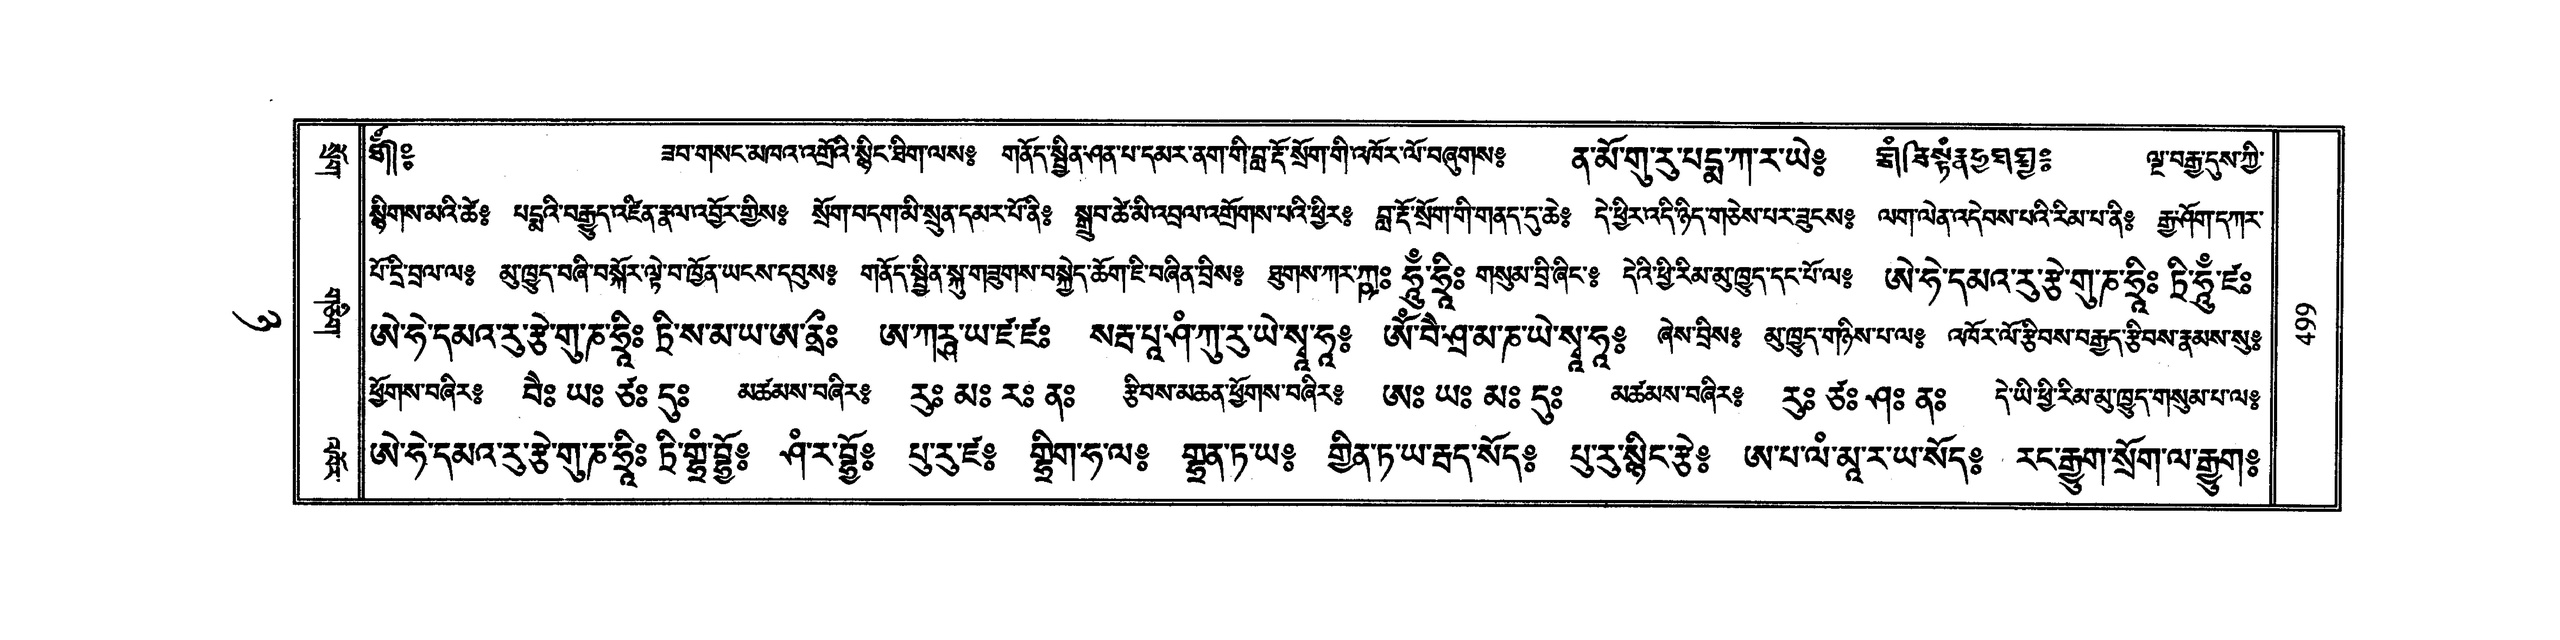 ཟབ་གསང་མཁའ་འགྲོའི་སྙིང་ཐིག་ལས༔ གནོད་སྦྱིན་ཤན་པ་དམར་ནག་གི་བླ་རྡོ་སྲོག་གི་འཁོར་ལོ་བཞུགས༔ ན་མོ་གུ་རུ་པདྨ་ཀ་ར་ཡེ༔ ལྔ་བརྒྱ་དུས་ཀྱི་
སྙིགས་མའི་ཚེ༔ པདྨའི་བརྒྱུད་འཛིན་རྣལ་འབྱོར་གྱིས༔ སྲོག་བདག་མི་སྲུན་དམར་པོ་ནི༔ སྒྲུབ་ཚེ་མི་འབྲལ་འགྲོགས་པའི་ཕྱིར༔ བླ་རྡོ་སྲོག་གི་གནད་དུ་ཆེ༔ དེ་ཕྱིར་འདི་ཉིད་གཅེས་པར་ཟུངས༔ ལག་ལེན་འདེབས་པའི་རིམ་པ་ནི༔ རྒྱ་ཤོག་དཀར་
པོ་དྲི་བྲལ་ལ༔ མུ་ཁྱུད་བཞི་བསྐོར་ལྟེ་བ་ཁྱོན་ཡངས་དབུས༔ གནོད་སྦྱིན་སྐུ་གཟུགས་བསྐྱེད་ཆོག་ཇི་བཞིན་བྲིས༔ ཐུགས་ཀར་ཀྵ༔ ཧཱུྃ་ཧྲཱི༔ གསུམ་བྲི་ཞིང་༔ དེའི་ཕྱི་རིམ་མུ་ཁྱུད་དང་པོ་ལ༔ ཨེ་ཧེ་དམའ་རུ་རྩེ་གུ་ཏ་ཧྲཱི༔ ཏྲི་ཧཱུྃ་ཛ༔
ཨེ་ཧེ་དམའ་རུ་རྩེ་གུ་ཏ་ཧྲཱི༔ ཏྲི་ས་མ་ཡ་ཨ་ནྲྀཾ༔ ཨ་ཀརྵ་ཡ་ཛ་ཛ༔ སརྦ་པཱ་ཤཾ་ཀུ་རུ་ཡེ་སྭཱ་ཧཱ༔ ཨོཾ་བཻ་ཤྲ་མ་ཏ་ཡེ་སྭཱ་ཧཱ༔ ཞེས་བྲིས༔ མུ་ཁྱུད་གཉིས་པ་ལ༔ འཁོར་ལོ་རྩིབས་བརྒྱད་རྩིབས་རྣམས་སུ༔
ཕྱོགས་བཞིར༔ བཻ༔ ཡ༔ ཙ༔ དུ༔ མཚམས་བཞིར༔ རུ༔ མ༔ ར༔ ན༔ རྩིབས་མཆན་ཕྱོགས་བཞིར༔ ཨ༔ ཡ༔ མ༔ དུ༔ མཚམས་བཞིར༔ རུ༔ ཙ༔ ཤ༔ ན༔ དེ་ཡི་ཕྱི་རིམ་མུ་ཁྱུད་གསུམ་པ་ལ༔
ཨེ་ཧེ་དམའ་རུ་རྩེ་གུ་ཏ་ཧྲཱི༔ ཤཾ་ར་བྷྱོ༔ པུ་རུ་ཛ༔ གྷྲིག་ཧ་ལ༔ གྷྲན་ཏ་ཡ༔ གྱིན་ཏ་ཡ་རྦད་སོད༔ པུ་རུ་སྙིང་རྩེ༔ ཨ་པ་ལཾ་མཱ་ར་ཡ་སོད༔ རང་རྒྱུག་སྲོག་ལ་རྒྱུག༔
499